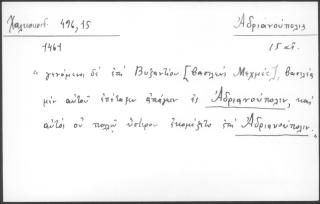 Χαλκοκονδ. 496,15 Ἀδριανούπολις
1461 15 αἰ.
"γενόμενος δὲ ἐπὶ Βυζαντίου [βασιλεὺς Μεχμέτ], βασιλέα
μὲν αὐτοῦ ἐπέταξεν ἀπάγειν ἐς Ἀδριανούπολιν, καὶ
αὐτὸς οὐ πολλῷ ὕστερον ἐκομίζετο ἐπὶ Ἀδριανούπολιν."